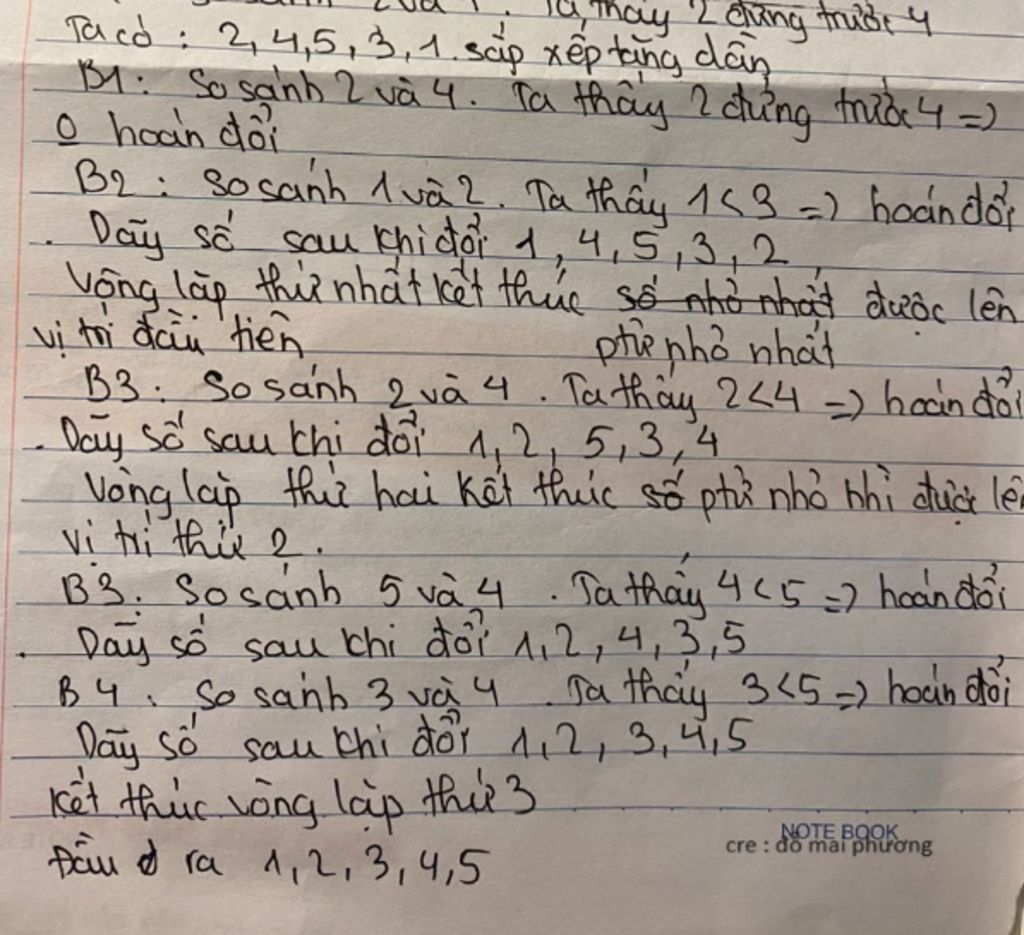 2 và 1. Ta thấy 2 đứng trước 4
Ta có : 2, 4, 5, 3, 1. sắp xếp tăng dần
B1: So sánh 2 và 4. Ta thấy 2 đứng trước 4 =>
0 hoán đổi
B2: So sánh 1 và 2. Ta thấy 1 < 3 => hoán đổi
. Dãy số sau khi đổi 1, 4, 5, 3, 2
Vộng lặp thứ nhất kết thúc số nhỏ nhất được lên
vị trí đầu tiên ptử nhỏ nhất
B3: So sánh 2 và 4. Ta thấy 2<4 => hoán đổi
. Dãy số sau khi đổi 1, 2, 5, 3, 4
Vòng lặp thứ hai kết thúc số ptử nhỏ nhì được lê
vị trí thứ 2.
B3. So sánh 5 và 4. Ta thấy 4<5 => hoán đổi
. Dãy số sau khi đổi 1, 2, 4, 3, 5
B4. So sánh 3 và 4. Ta thấy 3<5 => hoán đổi
Dãy số sau khi đổi 1, 2, 3, 4, 5
Kết thúc vòng lặp thứ 3
Đầu ra 1, 2, 3, 4, 5
NOTE BOOK
cre : đỗ mai phương